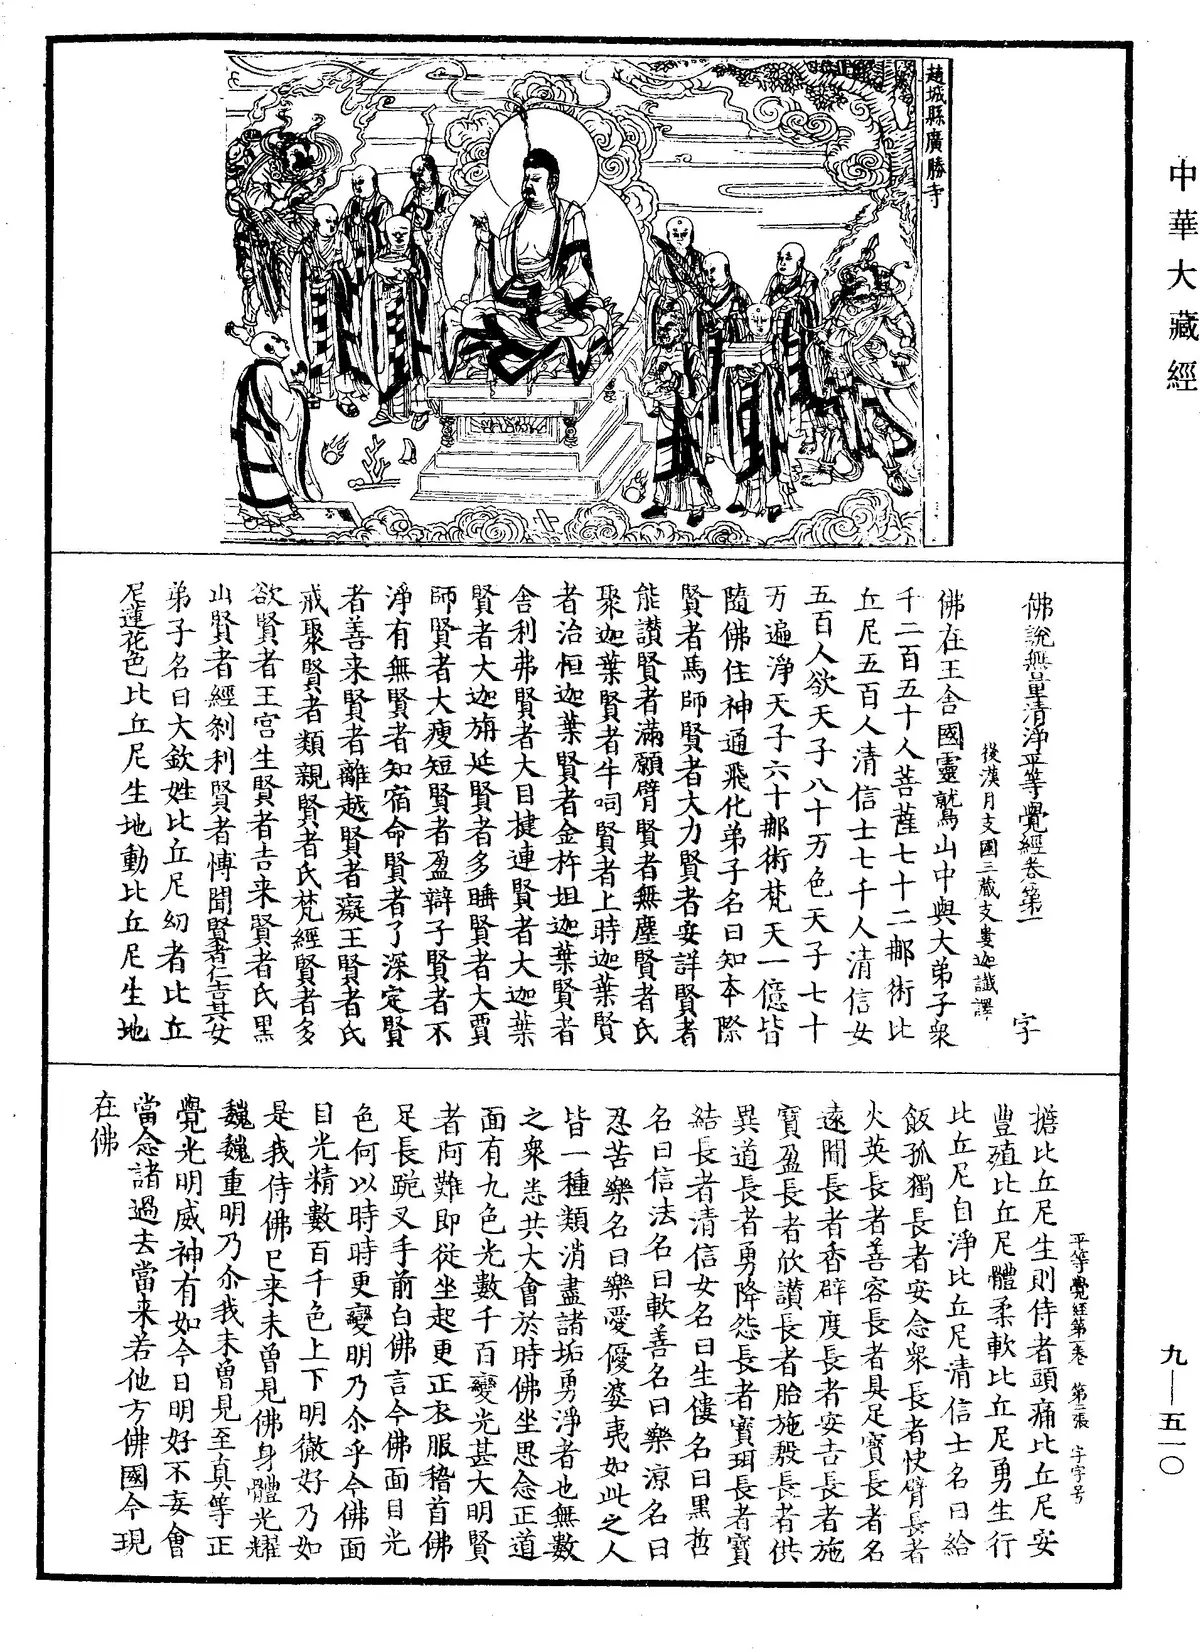 中華大藏經
趙城縣廣勝寺
佛說無量清淨平等覺經卷第一 字
後漢月支國三藏支婁迦讖譯
佛在王舍國靈鷲山中與大弟子衆
千二百五十人菩薩七十二那術比
丘尼五百人清信士七千人清信女
五百人欲天子八十万色天子七十
万遍淨天子六十那術梵天一億皆
隨佛住神通飛化弟子名曰知本際
賢者馬師賢者大力賢者安詳賢者
能讃賢者滿願臂賢者無塵賢者氏
聚迦葉賢者牛呞賢者上時迦葉賢
者治恒迦葉賢者金杵坦迦葉賢者
舍利弗賢者大目揵連賢者大迦葉
賢者大迦旃延賢者多睡賢者大賈
師賢者大瘦短賢者盈辯子賢者不
淨有無賢者知宿命賢者了深定賢
者善来賢者離越賢者癡王賢者氏
戒聚賢者類親賢者氏梵經賢者多
欲賢者王宫生賢者告来賢者氏黑
山賢者經刹利賢者博聞賢者仁吉其女
弟子名曰大欽姓比丘尼幼者比丘
尼蓮花色比丘尼生地動比丘尼生地
擔比丘尼生則侍者頭痛比丘尼安
豐殖比丘尼體柔軟比丘尼勇生行
比丘尼自淨比丘尼清信士名曰給
飯孤獨長者安念衆長者快臂長者
火英長者善容長者具足寶長者名
遠聞長者香辟度長者安吉長者施
寶盈長者欣讃長者胎施殷長者供
異道長者勇降怨長者寶珥長者寶
結長者清信女名曰生僂名曰黑哲
名曰信法名曰軟善名曰樂涼名曰
忍苦樂名曰樂愛優婆夷如此之人
皆一種類消盡諸垢勇淨者也無數
之衆悉共大會於時佛坐思念正道
面有九色光數千百變光甚大明賢
者阿難即從坐起更正衣服稽首佛
足長跪叉手前白佛言今佛面目光
色何以時時更變明乃尒乎今佛面
目光精數百千色上下明徹好乃如
是我侍佛已来未曽見佛身體光耀
巍巍重明乃尒我未曽見至真等正
覺光明威神有如今日明好不妄會
當念諸過去當来若他方佛國今現
在佛
平等覺經第一卷 第二張 字字号
九—五一〇